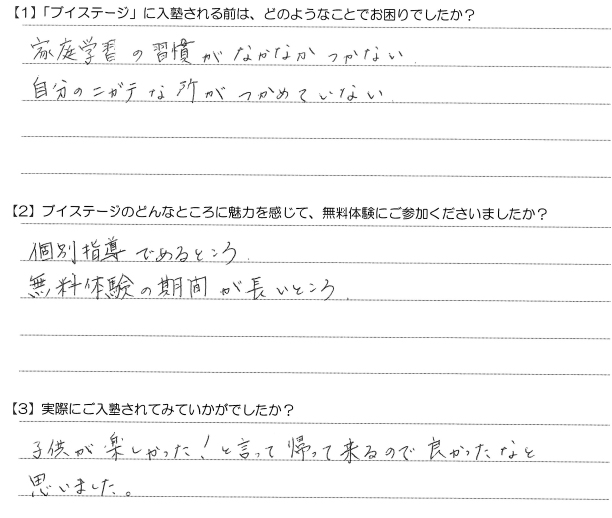 【1】「ブイステージ」に入塾される前は、どのようなことでお困りでしたか？
家庭学習の習慣がなかなかつかない.
自分のニガテな所がつかめていない.
【2】ブイステージのどんなところに魅力を感じて、無料体験にご参加くださいましたか？
個別指導であるところ.
無料体験の期間が長いところ.
【3】実際にご入塾されてみていかがでしたか？
子供が楽しかった！と言って帰って来るので良かったなと
思いました。